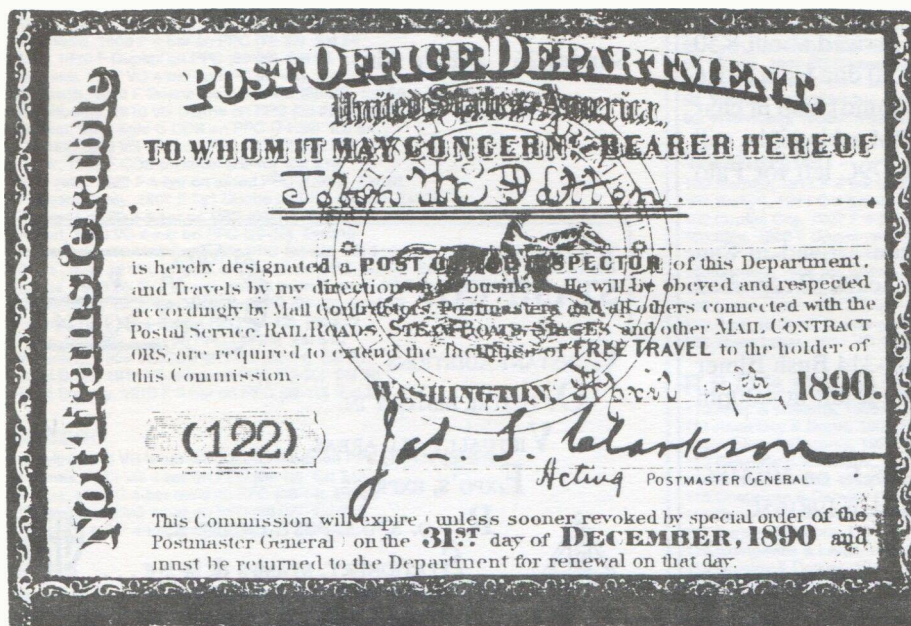 Not Transferable
POST OFFICE DEPARTMENT.
United States of America.
TO WHOM IT MAY CONCERN: BEARER HEREOF
John McDutton
is hereby designated a POST OFFICE INSPECTOR of this Department,
and Travels by my direction on its business. He will be obeyed and respected
accordingly by Mail Contractors, Postmasters and all others connected with the
Postal Service. RAIL ROADS, STEAM BOATS, STAGES and other MAIL CONTRACT
ORS, are required to extend the facilities of FREE TRAVEL to the holder of
this Commission.
WASHINGTON, April 1890.
(122)
Jas. S. Clarkson
Acting POSTMASTER GENERAL.
This Commission will expire (unless sooner revoked by special order of the
Postmaster General) on the 31ST day of DECEMBER, 1890 and
must be returned to the Department for renewal on that day.